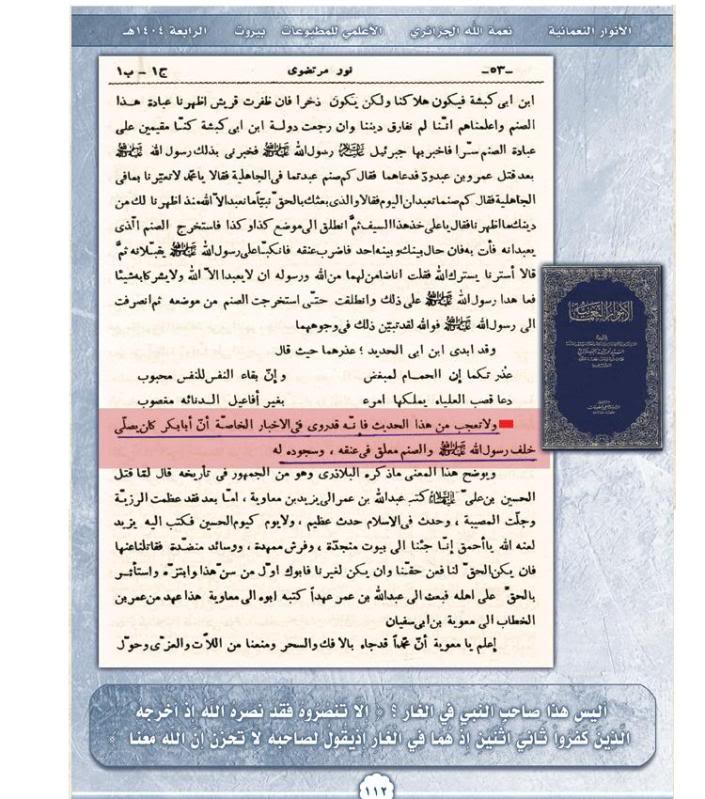 الأنوار النعمانية نعمة الله الجزائري الأعلمي للمطبوعات بيروت الرابعة ١٤٠٤هـ
-٥٣- نور مرتضوى ج١ - ب١
ابن ابى كبشة فيكون هلاكنا ولكن يكون ذخرا فان ظفرت قريش اظهرنا عبادة هذا
الصنم واعلمناهم اننا لم نفارق ديننا وان رجعت دولة ابن ابى كبشة كنا مقيمين على
عبادة الصنم سرا فاخبر بها جبرئيل رسول الله فخبرنى بذلك رسول الله
بعد قتل عمرو بن عبدود فدعاهما فقال كم صنم عبدتما فى الجاهلية فقالا يا محمد لا تعيرنا بما فى
الجاهلية فقال كم صنما تعبدان اليوم فقالا والذى بعثك بالحق نبيا ما نعبد الا الله منذ اظهرنا لك من
دينك ما اظهرنا فقال يا على خذ هذا السيف ثم انطلق الى موضع كذا وكذا فاستخرج الصنم الذى
يعبدانه فأت به فان حال بينك وبينه احد فاضرب عنقه فانكبا على رسول الله يقبلانه ثم
قالا أسترنا يسترك الله فقلت انا ضامن لهما من الله ورسوله ان لا يعبدا الا الله ولا يشركا به شيئا
فعاهدا رسول الله على ذلك وانطلقت حتى استخرجت الصنم من موضعه ثم انصرفت
الى رسول الله فوالله لقد تبين ذلك فى وجوههما
وقد ابدى ابن ابى الحديد ؛ عذرهما حيث قال
عذرتكما إن الحمام لمبغض وإن بقاء النفس للنفس محبوب
دعا قصب العلياء يملكها امرء بغير أفاعيل الدنائه مغصوب
ولا تعجب من هذا الحديث فانه قد روى فى الاخبار الخاصة أن أبابكر كان يصلى
خلف رسول الله والصنم معلق فى عنقه ، وسجوده له
ويوضح هذا المعنى ما ذكره البلاذرى وهو من الجمهور فى تأريخه قال لما قتل
الحسين بن على كتب عبدالله بن عمر الى يزيد بن معاوية ، اما بعد فقد عظمت الرزية
وجلت المصيبة ، وحدث فى الاسلام حدث عظيم ، ولا يوم كيوم الحسين فكتب اليه يزيد
لعنه الله يا أحمق إننا جئنا الى بيوت منجدة ، وفرش ممهدة ، ووسائد منضدة فقاتلنا عنها
فان يكن الحق لنا فعن حقنا وان يكن لغيرنا فابوك اول من سن هذا وابتز ه واستأثر
بالحق على اهله فبعث الى عبدالله بن عمر عهداً كتبه ابوه الى معاوية هذا عهد من عمر بن
الخطاب الى معوية بن ابى سفيان
إعلم يا معوية أن محمداً قد جاء بالافك والسحر ومنعنا من اللات والعزى وحول
الأنوار النعمانية
أليس هذا صاحب النبي في الغار ؟ ﴿ إلا تنصروه فقد نصره الله إذ أخرجه
الذين كفروا ثاني اثنين إذ هما في الغار إذ يقول لصاحبه لا تحزن إن الله معنا ﴾
١١٢